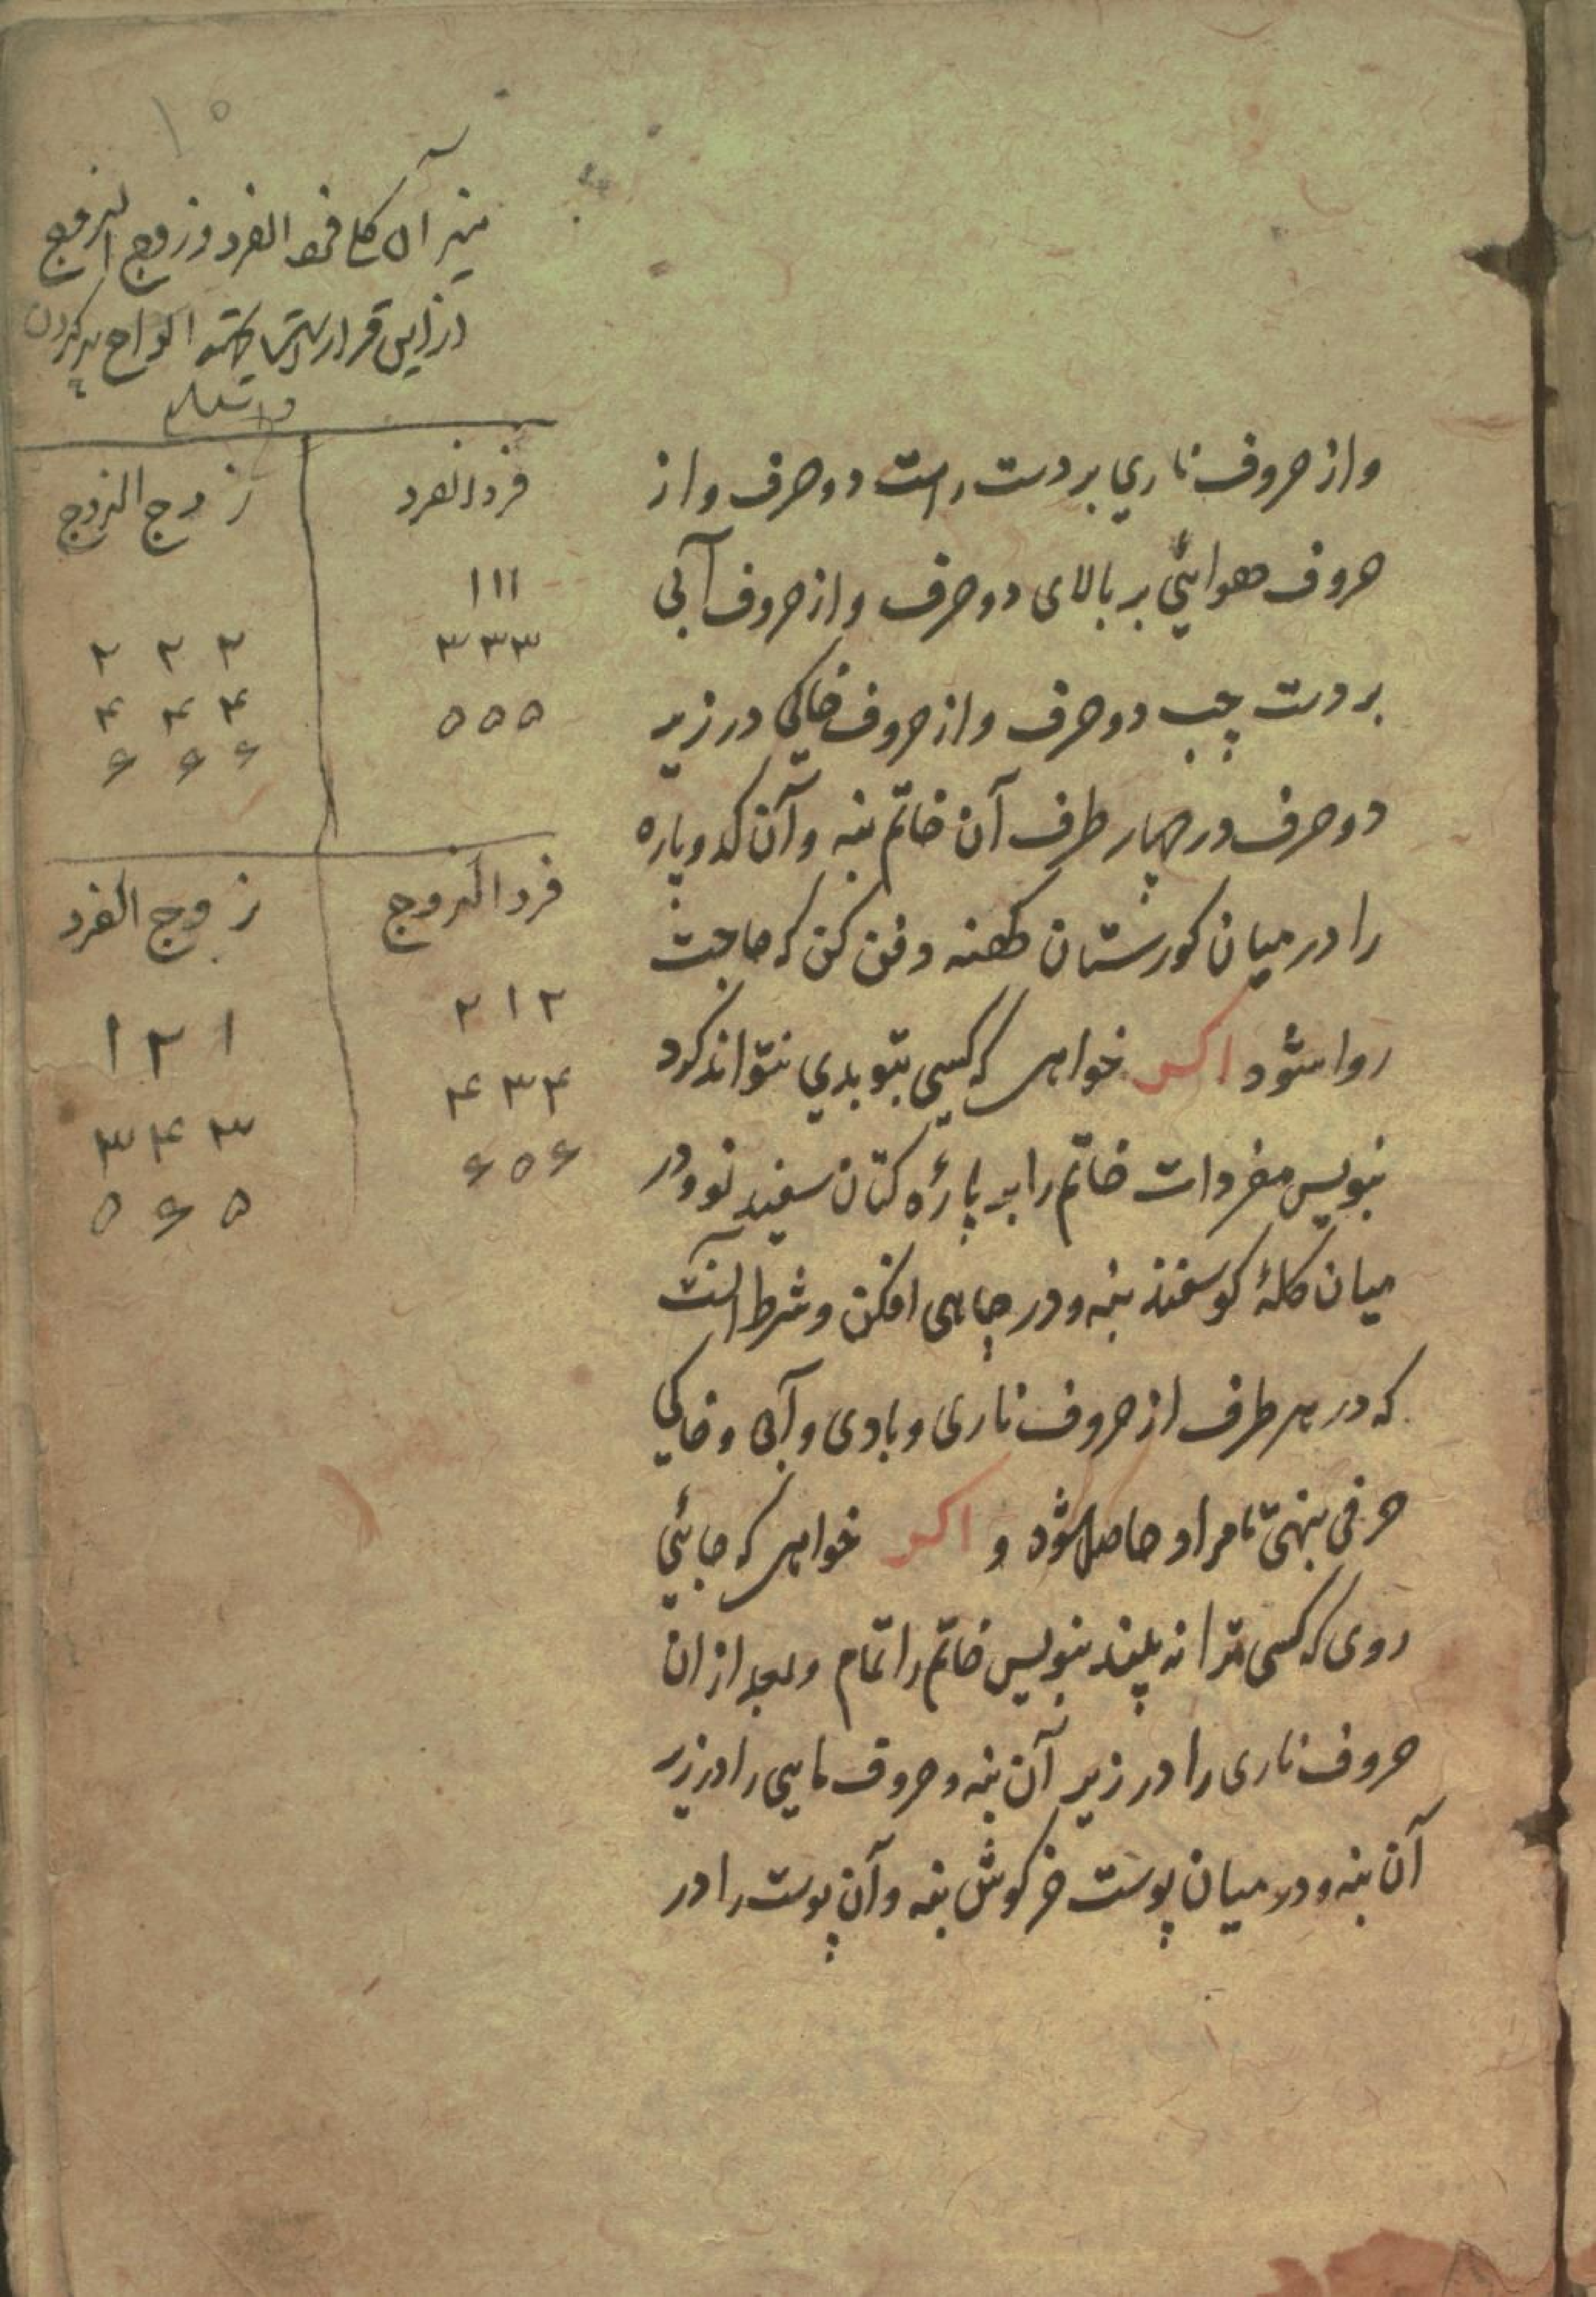 ۱۵
میزان کل فرد الفرد و زوج الزوج
از این قرار است الواح پر کردن
والسلام
فرد الفرد
۱۱۱
۳۳۳
۵۵۵
زوج الزوج
۲ ۲ ۲
۴ ۴ ۴
۶ ۶ ۶
فرد الزوج
۲۱۲
۴۳۴
۶۵۶
زوج الفرد
۱۲۱
۳۴۳
۵۶۵
واز حروف ناري بر دست راست دو حرف واز
حروف هوائي بر بالای دو حرف واز حروف آبی
بر دست چپ دو حرف واز حروف خاکی در زیر
دو حرف در چهار طرف آن خاتم بنه وآن کدو پاره
را در میان کورستان کهنه دفن کن که حاجت
روا شود اکر خواهی که کسی بتو بدي نتواند کرد
بنویس مفردات خاتم را بر پارۀ کتان سفید نو ودر
میان کلۀ کوسفند بنه ودر چاهی افکن وشرط آنست
که در هر طرف از حروف ناری وبادی وآبی وخاکی
حرفی بنهی تا مراد حاصل شود و اکر خواهی که جائی
روی که کسی ترا نه بیند بنویس خاتم را تمام وبعد از ان
حروف ناری را در زیر آن بنه وحروف مایی را در زیر
آن بنه ودر میان پوست خرکوش بنه وآن پوست را در